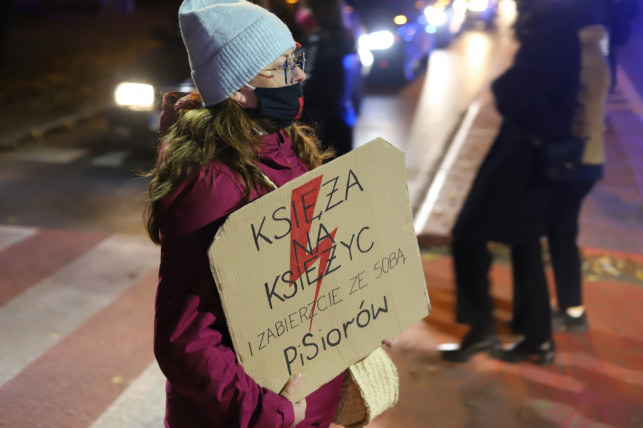 KSIĘŻA
NA
KSIĘŻYC
I ZABIERZCIE ZE SOBĄ
PiSiorów